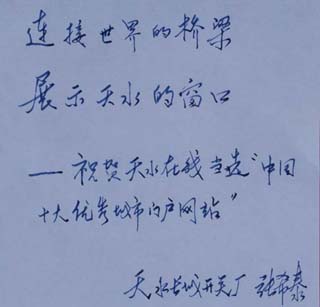 连接世界的桥梁
展示天水的窗口
——祝贺天水在线当选“中国
十大优秀城市门户网站”
天水长城开关厂 张希泰